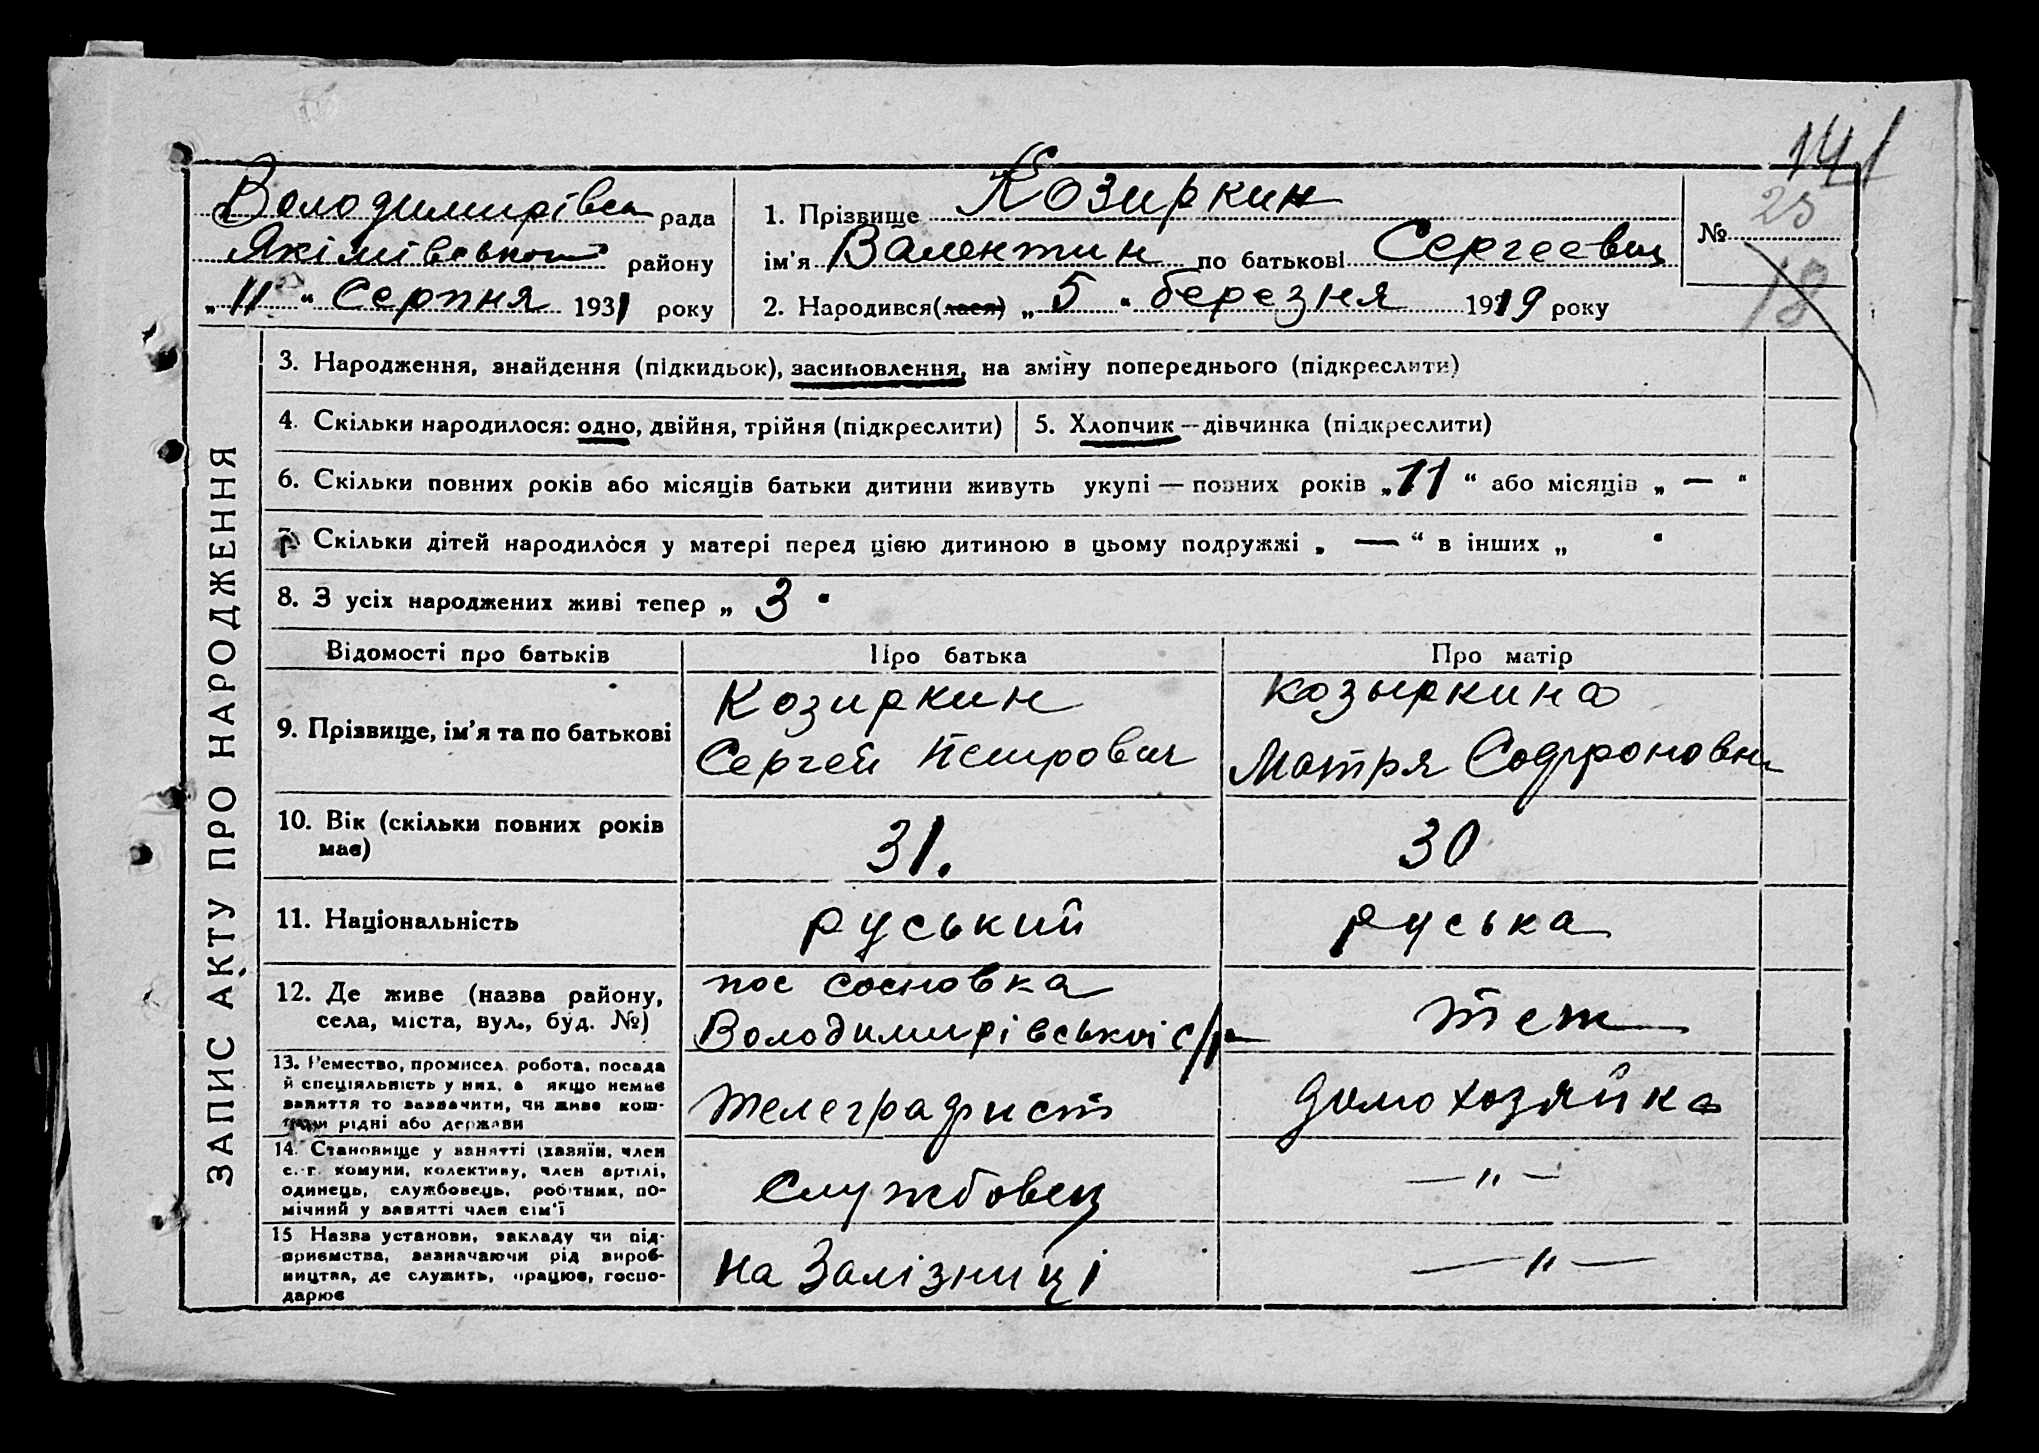 141
Володимирівса рада
Якімівської району
„ 11 “ Серпня 1931 року
1. Прізвище Козиркин
ім'я Валентин по батькові Сергеевич
2. Народився(лася) „ 5 “ березня 1919 року
№ 25
18
ЗАПИС АКТУ ПРО НАРОДЖЕННЯ
3. Народження, знайдення (підкидьок), засиновлення, на зміну попереднього (підкреслити)
4. Скільки народилося: одно, двійня, трійня (підкреслити)
5. Хлопчик — дівчинка (підкреслити)
6. Скільки повних років або місяців батьки дитини живуть укупі — повних років „ 11 “ або місяців „ — “
7. Скільки дітей народилося у матері перед цією дитиною в цьому подружжі „ — “ в інших „ “
8. З усіх народжених живі тепер „ 3 “
Відомості про батьків
Про батька
Про матір
9. Прізвище, ім'я та по батькові
Козиркин
Сергей Петрович
Козыркина
Мотря Софроновна
10. Вік (скільки повних років
має)
31.
30
11. Національність
руський
руська
12. Де живе (назва району,
села, міста, вул., буд. №)
пос сосновка
Володимирівської с/р
теж
13. Ремество, промисел, робота, посада
й спеціяльність у них, а якщо немає
заняття то зазначити, чи живе кош-
тами рідні або держави
телеграфист
домохозяйка
14. Становище у занятті (хазяїн, член
с.-г. комуни, колективу, член артілі,
одинець, службовець, робітник, по-
мічний у занятті член сім'ї
службовец
— „ —
15 Назва установи, закладу чи під-
приємства, зазначаючи рід вироб-
ництва, де служить, працює, госпо-
дарює
на Залізниці
— „ —